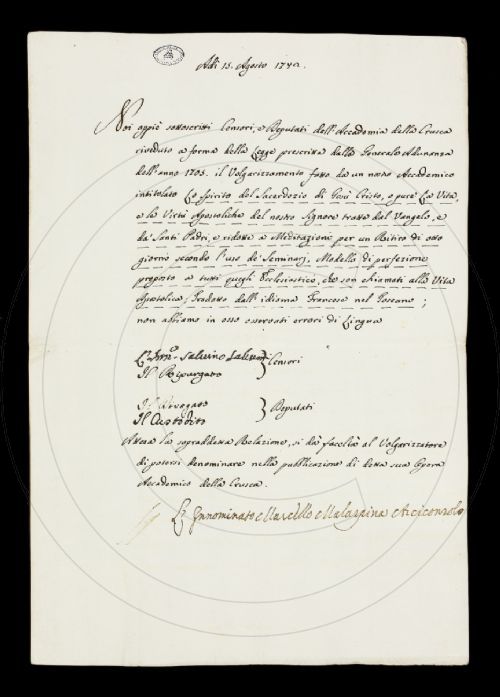 Adì 15. Agosto 1740.
Noi appiè sottoscritti Censori, e Deputati dell'Accademia della Crusca
riveduto a forma della Legge prescritta dalla Generale Adunanza
dell'anno 1705. il Volgarizzamento fatto da un nostro Accademico
intitolato Lo spirito del Sacerdozio di Gesù Cristo, o pure La Vita,
e le Virtù Apostoliche del nostro Signore tratte dal Vangelo, e
da' Santi Padri, e ridotte a Meditazione per un Ritiro di otto
giorni secondo l'uso de' Seminarj, Modello di perfezione
proposto a tutti quegli Ecclesiastici, che son chiamati alla Vita
Apostolica, Tradotto dall'idioma Franzese nel Toscano;
non abbiamo in esso osservati errori di Lingua
L'Inn.º Salvino Salvini } Censori
Il Ripurgato
Il } Deputati
Il Custodito
Attesa la sopraddetta Relazione, si dà facoltà al Volgarizzatore
di potersi denominare nella pubblicazione di detta sua Opera
Accademico della Crusca.
L'Innominato Marcello Malaspina Arciconsolo